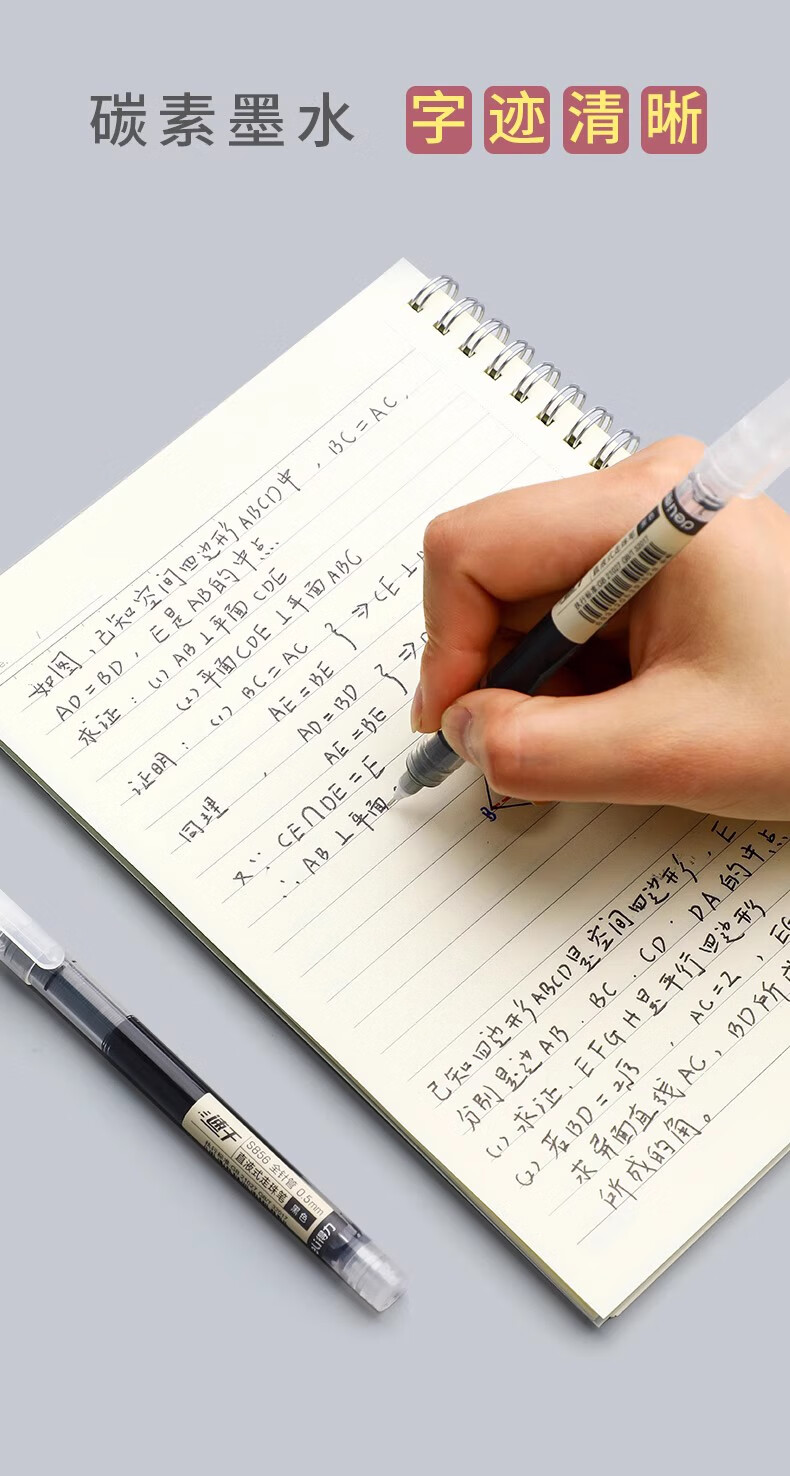 碳素墨水 字迹清晰
如图,已知空间四边形ABCD中,BC=AC,
AD=BD,E是AB的中点
求证:(1)AB⊥平面CDE
(2)平面CDE⊥平面ABC
证明:(1)BC=AC
AE=BE } => CE⊥
同理,AD=BD
AE=BE } =>
又∵CE∩DE=E
∴AB⊥平面
B
已知四边形ABCD是空间四边形,E
分别是边AB·BC·CD·DA的中点
(1)求证、EFGH是平行四边形
(2)若BD=2√3,AC=2,EG
求异面直线AC,BD所成
所成的角。
deli
速干
S656 全针管 0.5mm
直液式走珠笔 黑色
得力